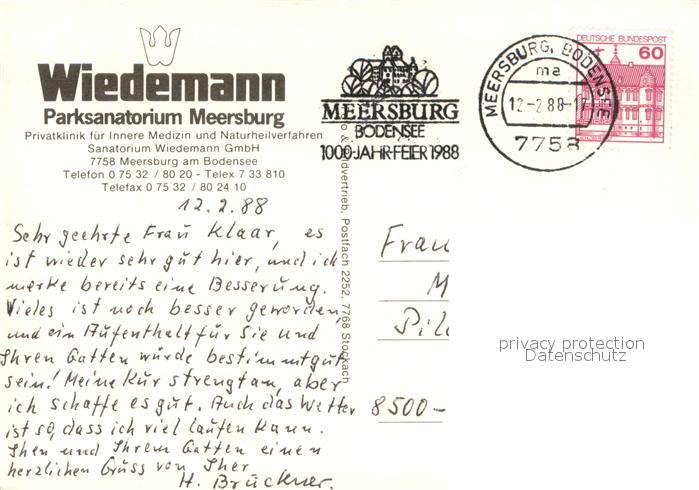 Wiedemann
Parksanatorium Meersburg
Privatklinik für Innere Medizin und Naturheilverfahren
Sanatorium Wiedemann GmbH
7758 Meersburg am Bodensee
Telefon 0 75 32 / 80 20 - Telex 7 33 810
Telefax 0 75 32 / 80 24 10
12.2.88
Sehr geehrte Frau Klaar, es
ist wieder sehr gut hier, und ich
merke bereits eine Besserung.
Vieles ist noch besser geworden,
und ein Aufenthalt für Sie und
Ihren Gatten würde bestimmt gut
sein! Meine Kur strengt an, aber
ich schaffe es gut. Auch das Wetter
ist so, dass ich viel laufen kann.
Ihen und Ihrem Gatten einen
herzlichen Gruss von Iher
H. Brückner.
MEERSBURG
BODENSEE
1000-JAHR-FEIER 1988
MEERSBURG, BODENSEE
ma
12-2.88-17
7758
DEUTSCHE BUNDESPOST
60
vertrieb, Postfach 2252, 7768 Stockach
Frau
M
Pil
8500-
privacy protection
Datenschutz